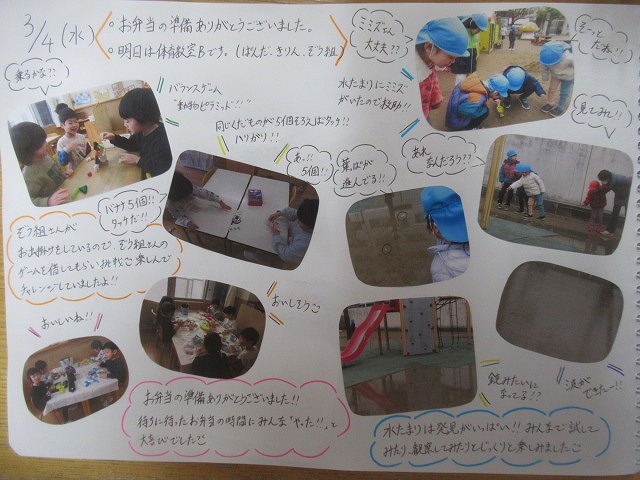 3/4(水)
。お弁当の準備ありがとうございました。
。明日は体育教室Bです。(ぱんだ、きりん、ぞう組)
乗るかな??
バランスゲーム
"動物ピラミッド"!!
同じくだものが5個そろえばタッチ!!
ハリガリ!!
バナナ5個!!
タッチだ!!
あっ!!
5個!!
ぞう組さんが
お出掛けをしているので、ぞう組さんの
ゲームを借してもらい挑戦♡楽しんで
チャレンジしていましたよ!!
おいしいね!!
おいしそう♡
お弁当の準備ありがとうございます!!
待ちに待ったお弁当の時間にみんな"やったー!!"と
大喜びでした♡
ミミズさん
大丈夫??
水たまりにミミズ
がいたので救助!!
そーっと
だね!!
見てみて!!
あれ
なんだろう??
葉っぱが
進んでる!!
鏡みたいに
なってる!?
波が
できたー!!
水たまりは発見がいっぱい!!みんなで試して
みたり、観察してみたりとじっくりと楽しみました♡